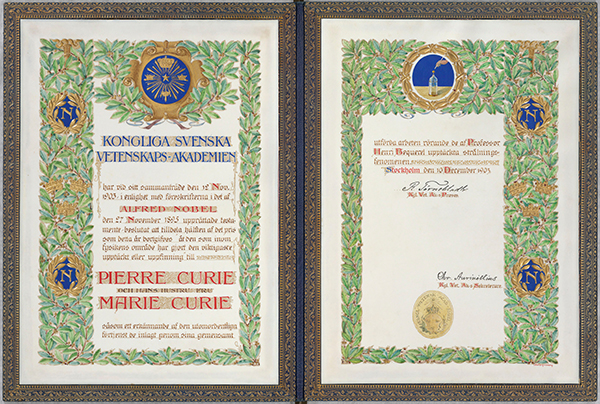 KONGLIGA SVENSKA
VETENSKAPS-AKADEMIEN
har vid sitt sammanträde den 12 Nov.
1903 i enlighet med föreskrifterna i det af
ALFRED NOBEL
den 27 November 1895 upprättade testa-
mente beslutat att tilldela hälften af det pris
som detta år bortgifves åt den som inom
fysikens område har gjort den viktigaste
upptäckt eller uppfinning till
PIERRE CURIE
OCH HANS HUSTRU FRU
MARIE CURIE
såsom ett erkännande af den utomordentliga
förtjenst de inlagt genom sina gemensamt
N
N
utförda arbeten rörande de af Professor
Henri Bequerel upptäckta strålnings-
fenomenen.
Stockholm den 10 December 1903.
Kgl. Vet. Ak:s Præses.
Kgl. Vet. Ak:s Sekreterare.
N
N